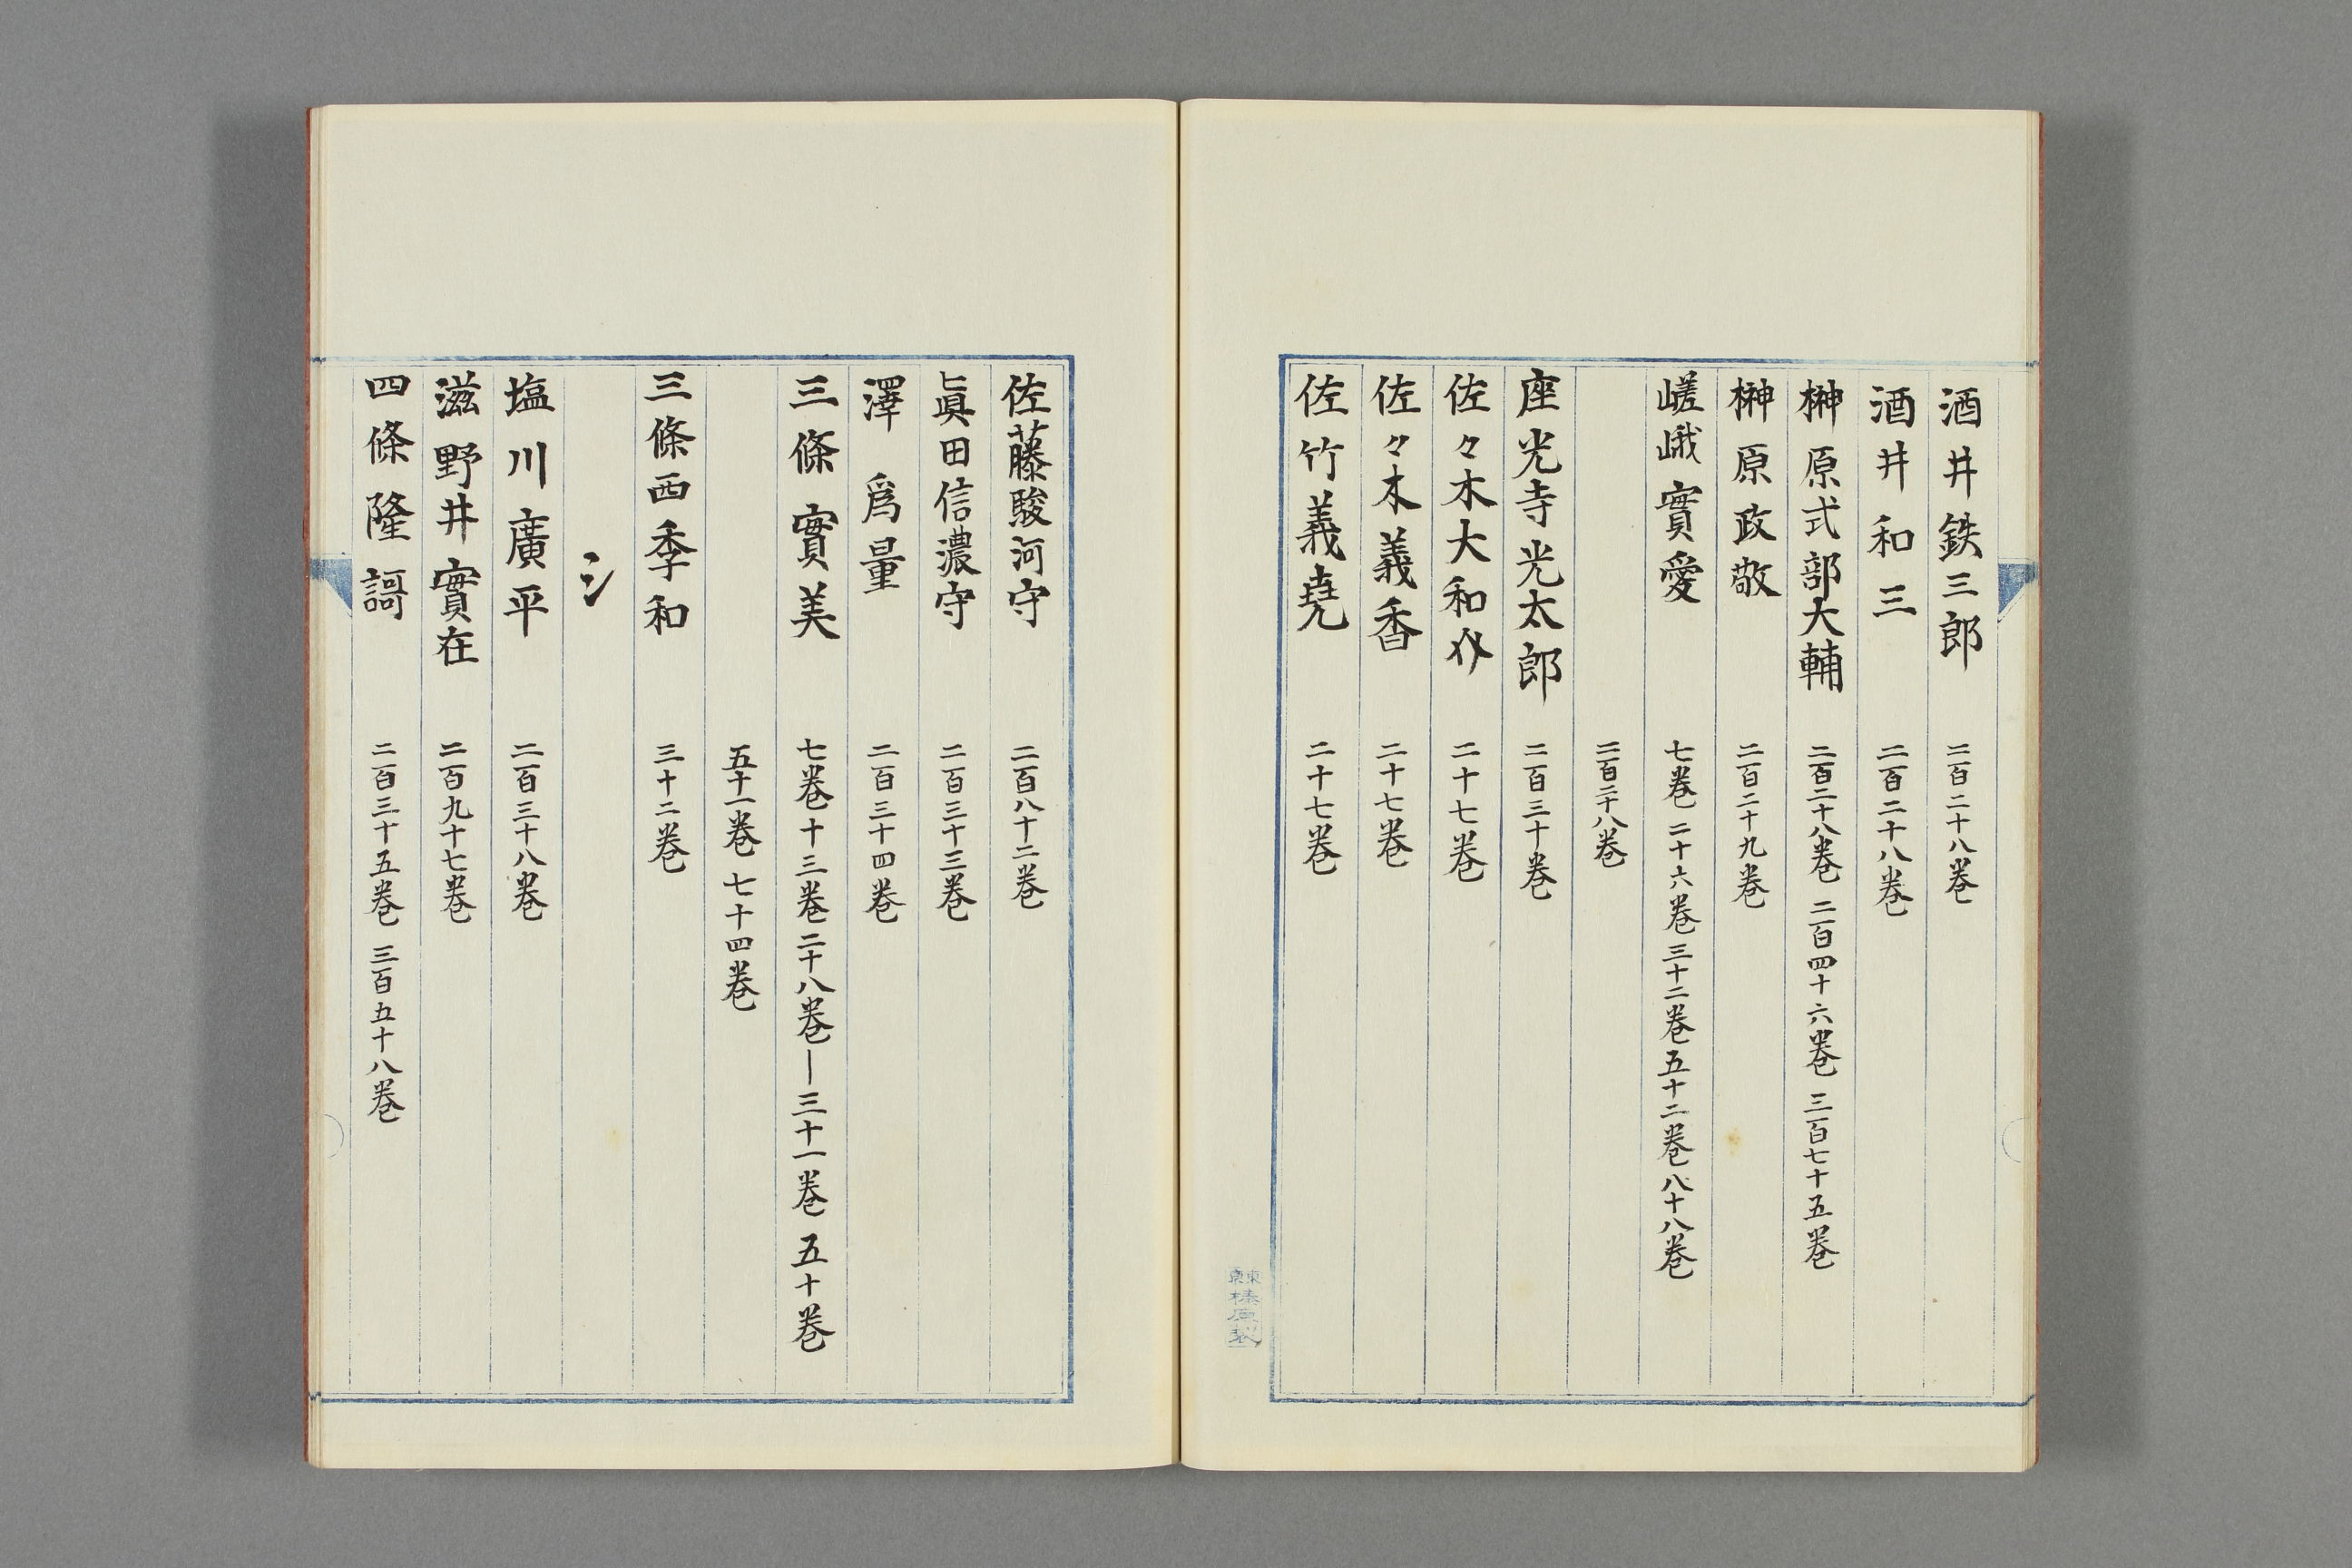 酒井鉄三郎 二百二十八巻
酒井和三 二百二十八巻
榊原式部大輔 二百二十八巻 二百四十六巻 三百七十五巻
榊原政敬 二百二十九巻
嵯峨實愛 七巻 二十六巻 三十二巻 五十二巻 八十八巻
二百二十八巻
座光寺光太郎 二百三十巻
佐々木大和介 二十七巻
佐々木義香 二十七巻
佐竹義堯 二十七巻
東京榛原製
佐藤駿河守 二百八十二巻
眞田信濃守 二百三十三巻
澤爲量 二百三十四巻
三條實美 七巻 十三巻 二十八巻―三十一巻 五十巻
五十一巻 七十四巻
三條西季和 三十二巻
シ
塩川廣平 二百三十八巻
滋野井實在 二百九十七巻
四條隆謌 二百三十五巻 三百五十八巻